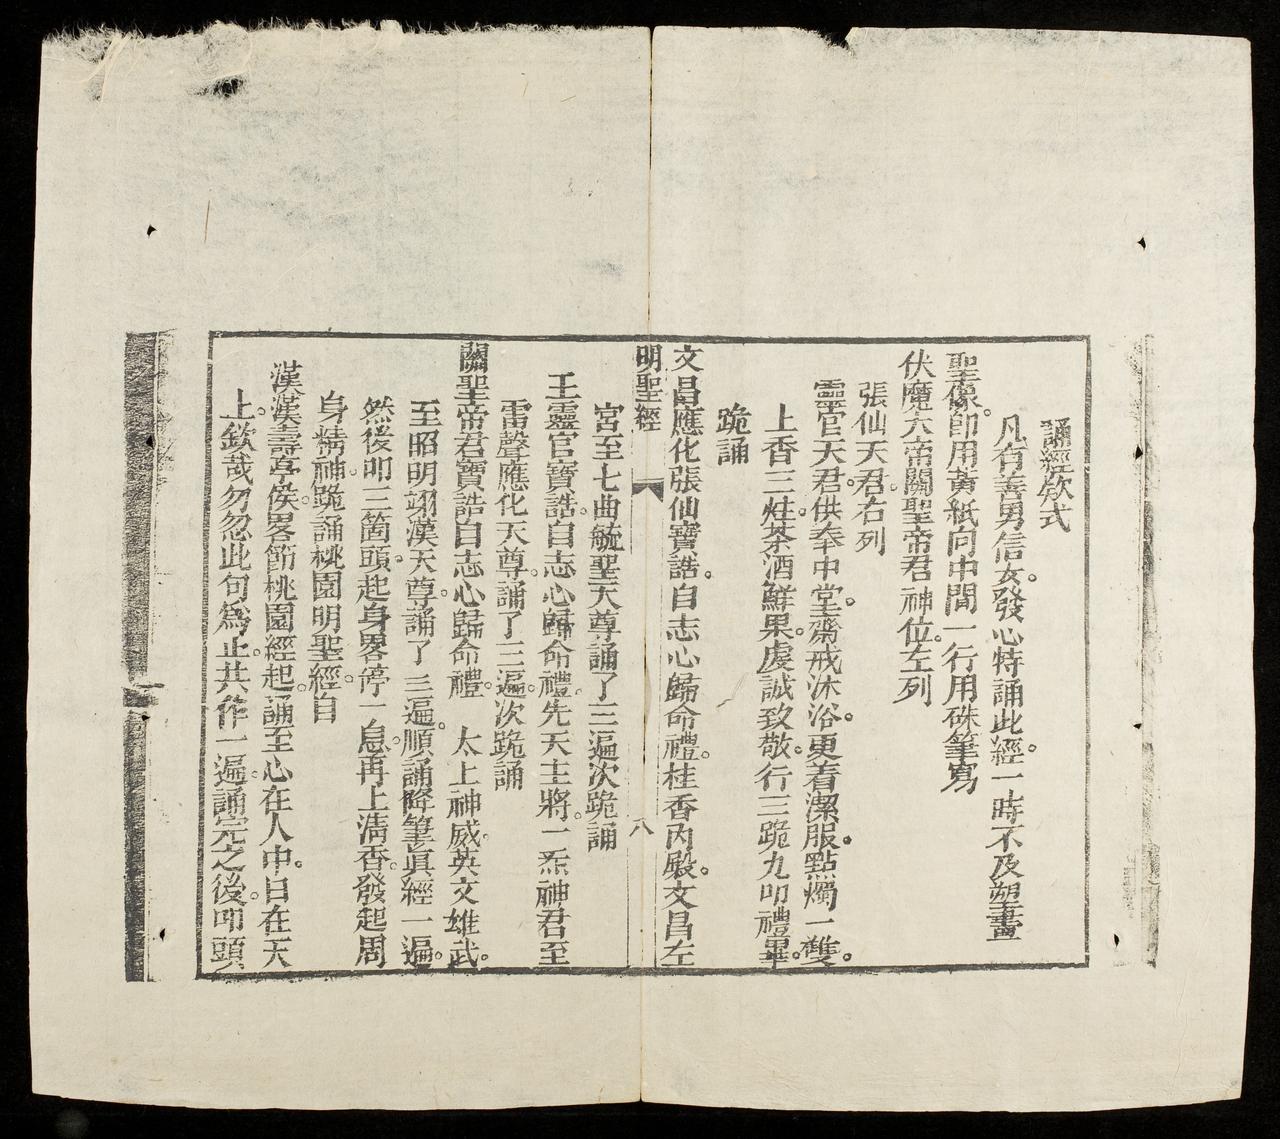 誦經欵式
凡有善男信女。發心特誦此經。一時不及塑畫
聖像。卽用黃紙向中間一行用硃筆寫
伏魔大帝關聖帝君神位。左列
張仙天君。右列
靈官天君。供奉中堂。齋戒沐浴。更着潔服。點燭一雙。
上香三炷。茶酒鮮果。虔誠致敬。行三跪九叩禮畢
跪誦
文昌應化張仙寶誥。自志心歸命禮。桂香內殿。文昌左
明聖經
八
宮至七曲毓聖天尊誦了三遍次跪誦
王靈官寶誥。自志心歸命禮。先天主將。一炁神君至
雷聲應化天尊。誦了三遍。次跪誦
關聖帝君寶誥自志心歸命禮。太上神威。英文雄武。
至昭明翊漢天尊。誦了三遍。順誦降筆眞經一遍。
然後叩三箇頭。起身畧停一息。再上淸香。發起周
身精神。跪誦桃園明聖經。自
漢漢壽亭侯。畧節桃園經起。誦至心在人中。日在天
上。欽哉勿忽此句爲止。共作一遍。誦完之後。叩頭